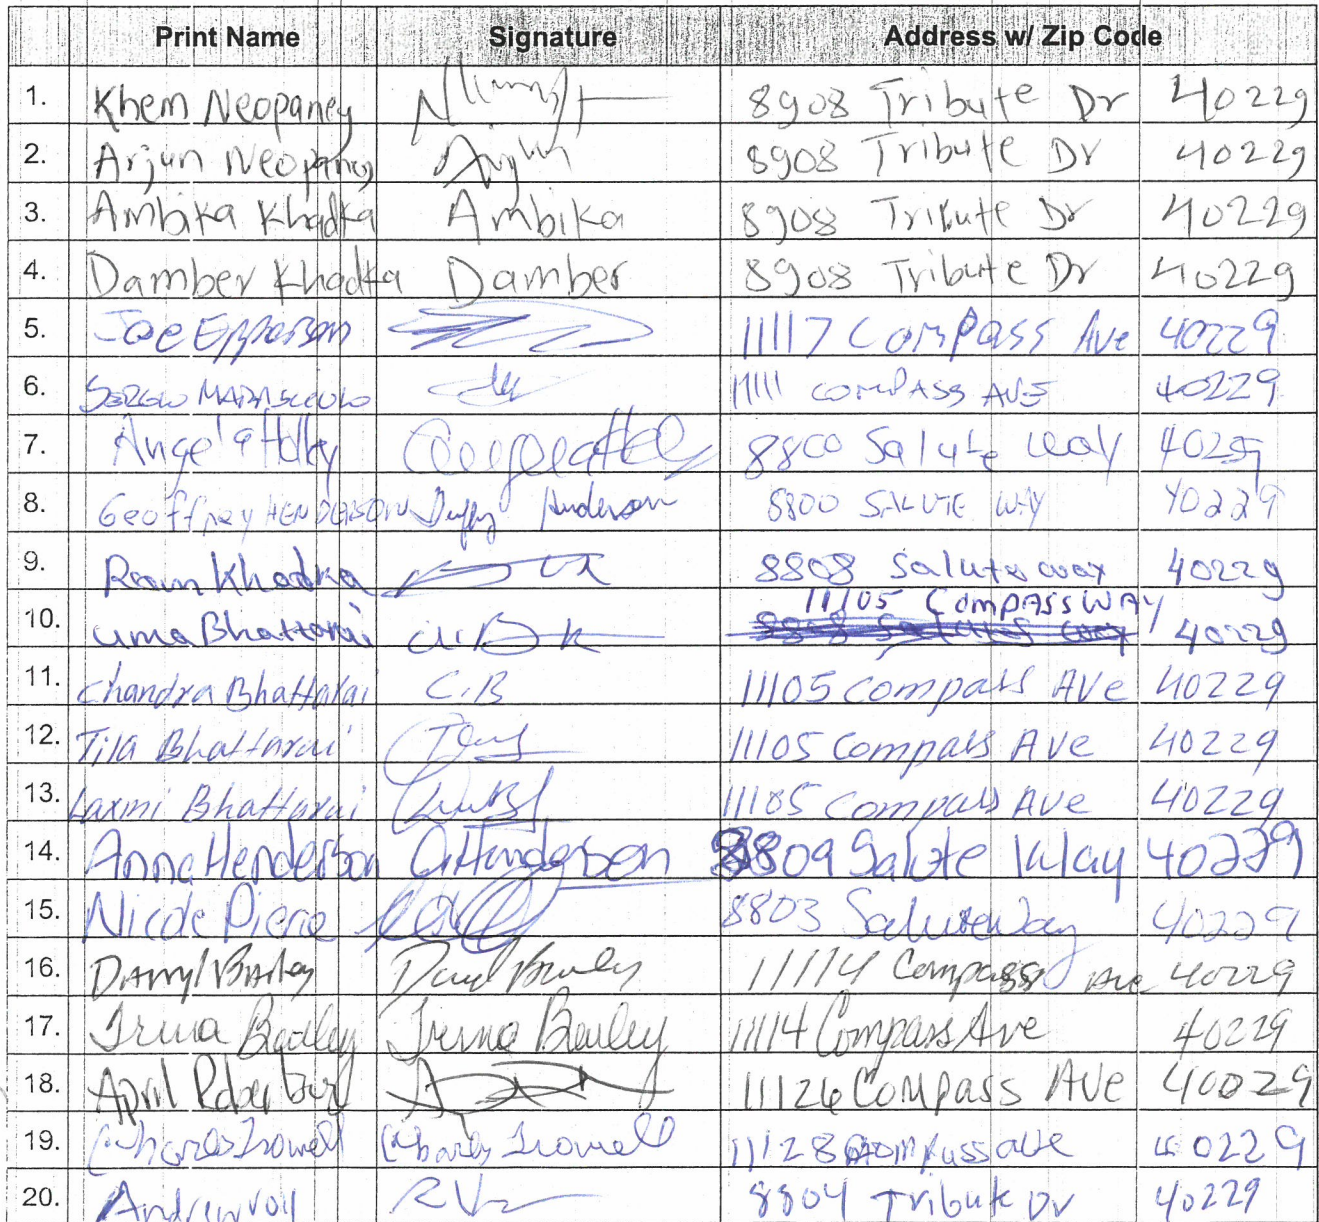 Print Name Signature Address w/ Zip Code
1. Khem Neopaney 8908 Tribute Dr 40229
2. Arjun Neopaney Arjun 8908 Tribute Dr 40229
3. Ambika Khadka Ambika 8908 Tribute Dr 40229
4. Damber Khadka Damber 8908 Tribute Dr 40229
5. Joe Epperson 11117 Compass Ave 40229
6. 11111 COMPASS AVE 40229
7. Angela 8800 Salute Way
8. Geoffrey HENDERSON Henderson 8800 SALUTE WAY 40229
9. Khadka 8808 Salute way 40229
11105 COMPASS WAY
10. Uma Bhattarai 40229
11. Chandra Bhattarai C.B 11105 Compass AVe 40229
12. Tila Bhattarai 11105 Compass AVe 40229
13. Laxmi Bhattarai 11105 Compass AVe 40229
14. Anna Henderson AHenderson 8809 Salute Way 40229
15. Nicole 8803 Salute Way 40229
16. Darryl Bailey 11114 Compass Ave 40229
17. 11114 Compass Ave 40229
18. April 11126 Compass AVe 40229
19. Charles Trowell Charles Trowell 11128 Compass ave 40229
20. 8804 Tribute Dr 40229